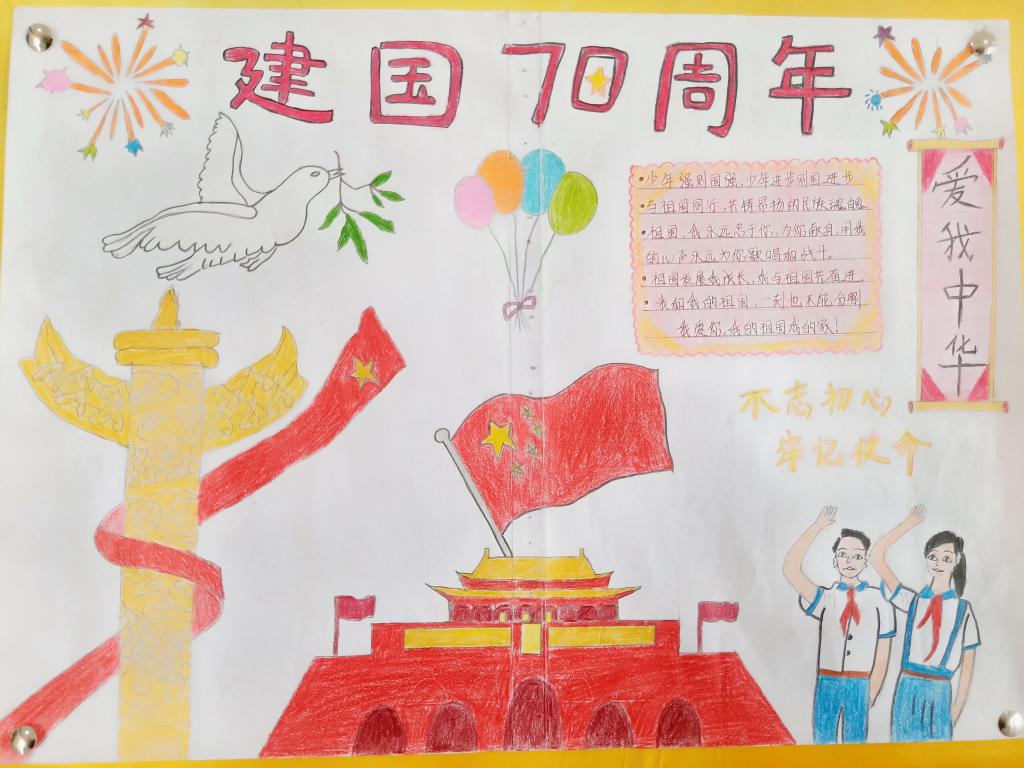 建国70周年
•少年强则国强,少年进步则国进步
•与祖国同行,共铸昂扬的民族魂魄
•祖国,我永远忠于你,为你献身,用我
的心声永远为你歌唱和战斗。
•祖国发展我成长,我与祖国共奋进。
•我和我的祖国,一刻也不能分割
我爱你,我的祖国我的家!
爱我中华
不忘初心
牢记使介